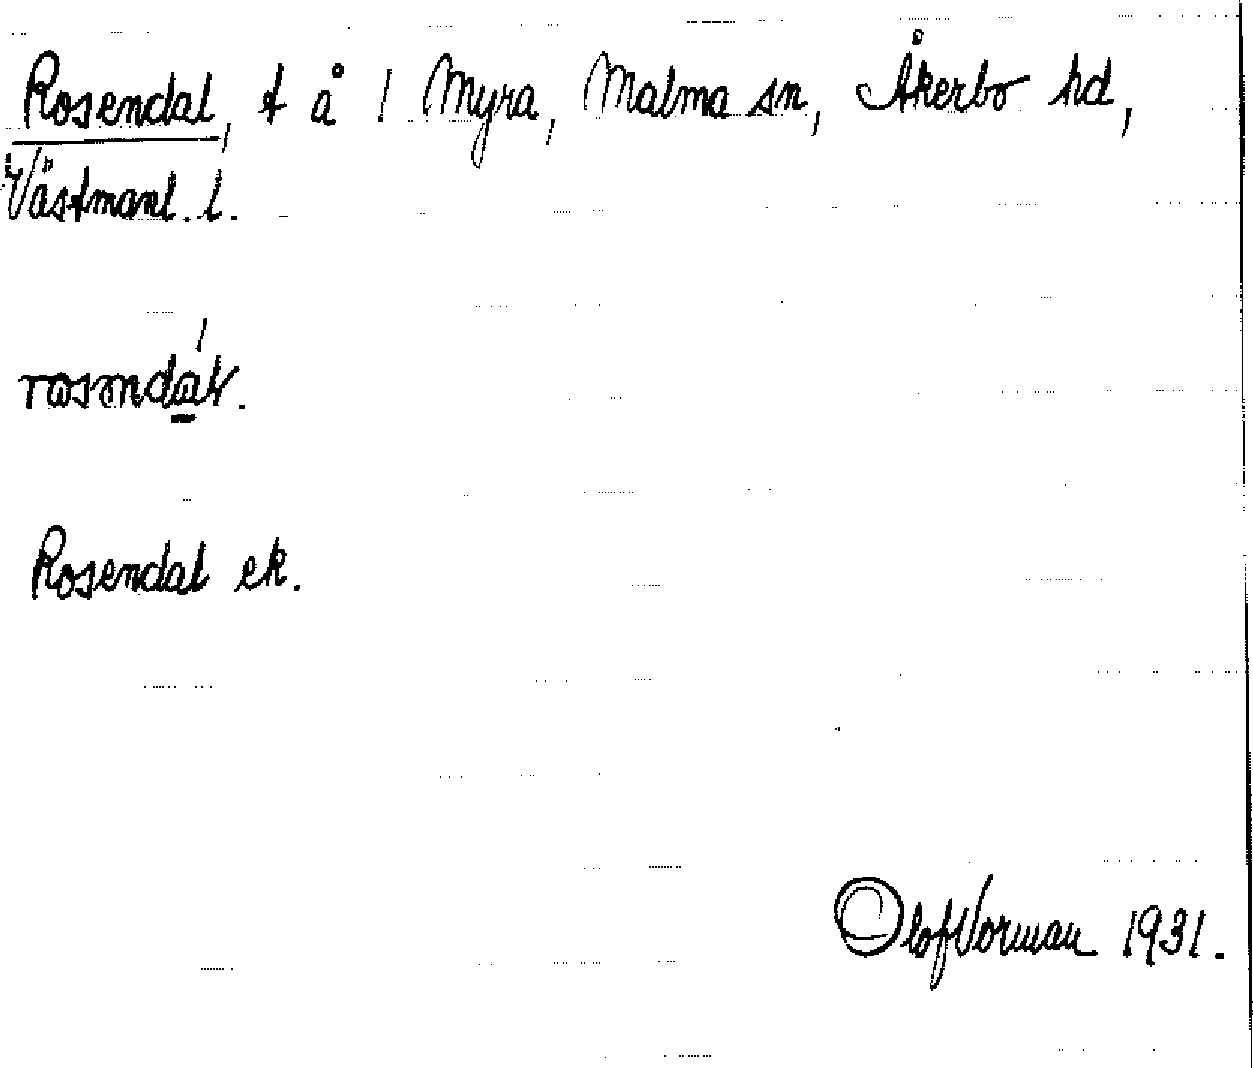 Rosendal, t å 1 Myra, Malma sn, Åkerbo hd,
Västmanl. l.
rosəndáḷ.
Rosendal ek.
Olof Norman 1931.